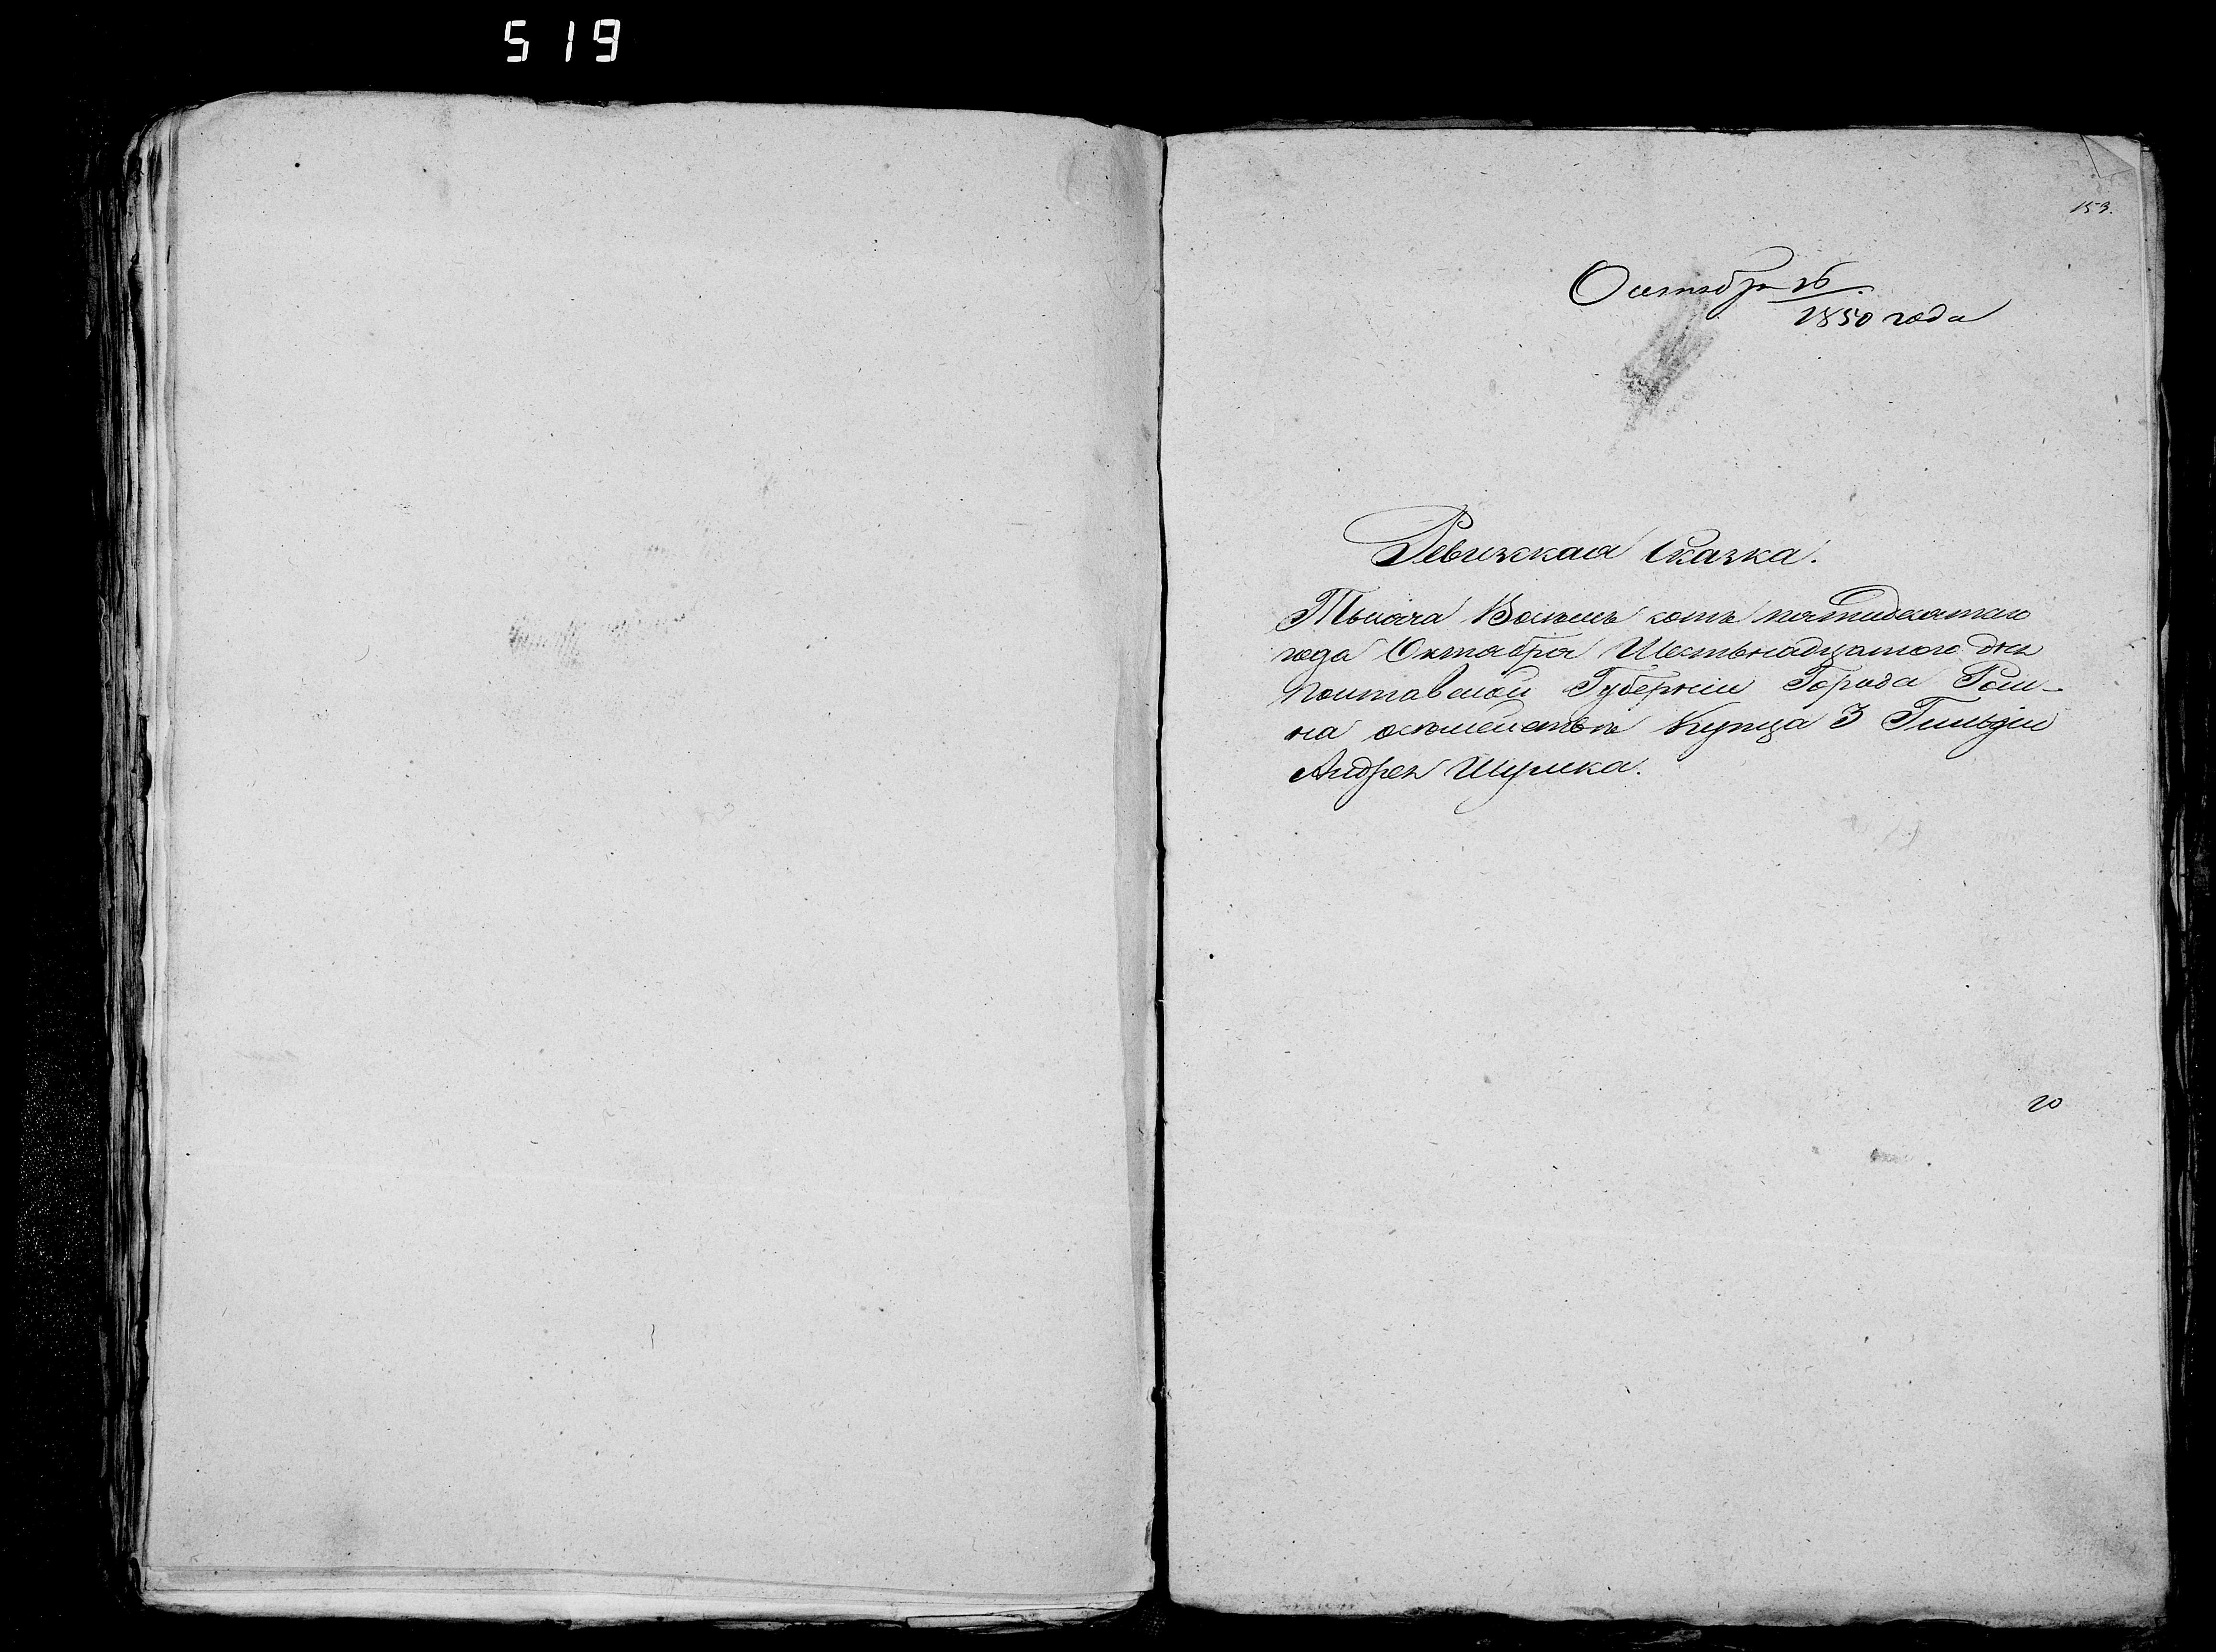 519
153.
Октября 16
1850 года
Ревизская Сказка.
Тысяча Восемь сотъ пятидесятаго
года Октября Шестьнадцатого дня
Полтавской Губернии Города Ром-
на осемействѣ Купца 3 Гильдіи
Андрея Шумка.
20